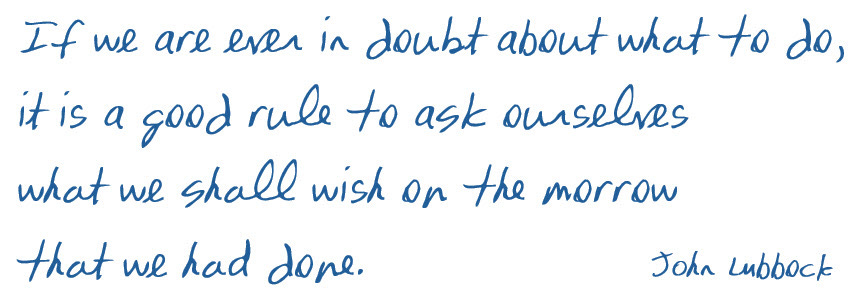 If we are ever in doubt about what to do,
it is a good rule to ask ourselves
what we shall wish on the morrow
that we had done.
John Lubbock